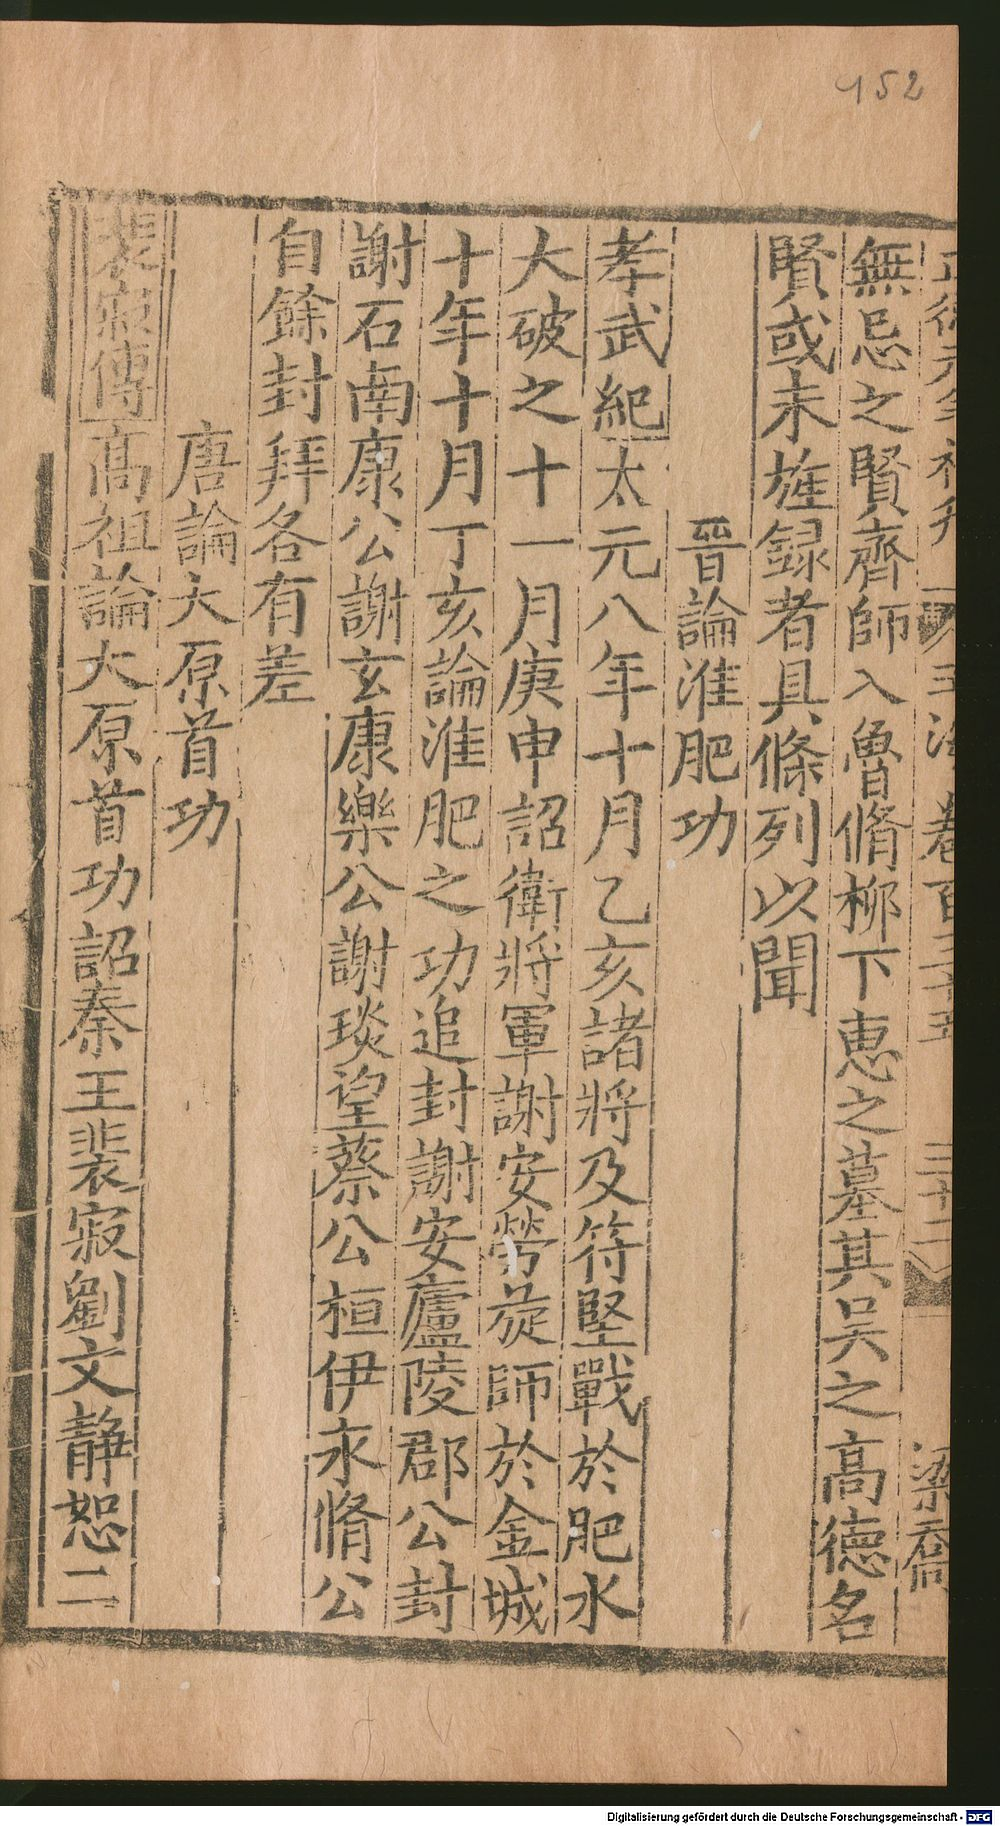 152
正德元年補刊 玉海卷百三十五 三十二
無忌之賢齊師入魯脩柳下惠之墓其吴之高德名
賢或未旌録者具條列以聞
晉論淮肥功
孝武紀太元八年十月乙亥諸將及符堅戰於肥水
大破之十一月庚申詔衛將軍謝安勞旋師於金城
十年十月丁亥論淮肥之功追封謝安廬陵郡公封
謝石南康公謝玄康樂公謝琰望蔡公桓伊永脩公
自餘封拜各有差
唐論大原首功
裴寂傳高祖論大原首功詔秦王裴寂劉文静恕二
Digitalisierung gefördert durch die Deutsche Forschungsgemeinschaft - DFG